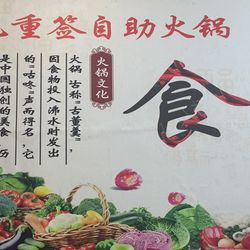 重签自助火锅
食
火锅文化
火锅,古称"古董羹",
因食物投入沸水时发出
的"咕咚"声而得名,它
是中国独创的美食,历